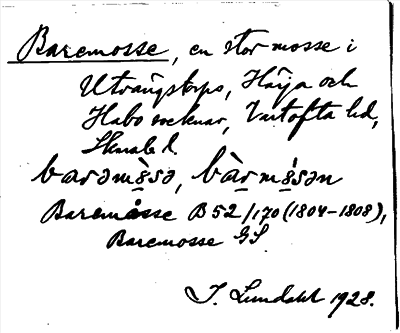 Baremosse, en stor mosse i
Utvängstorps, Härja och
Habo socknar, Vartofta hd,
Skarab. l.
barəmòsə, bàrmòsən
Baremåsse B 52/170 (1804–1808),
Baremosse GS.
I. Lundahl 1928.